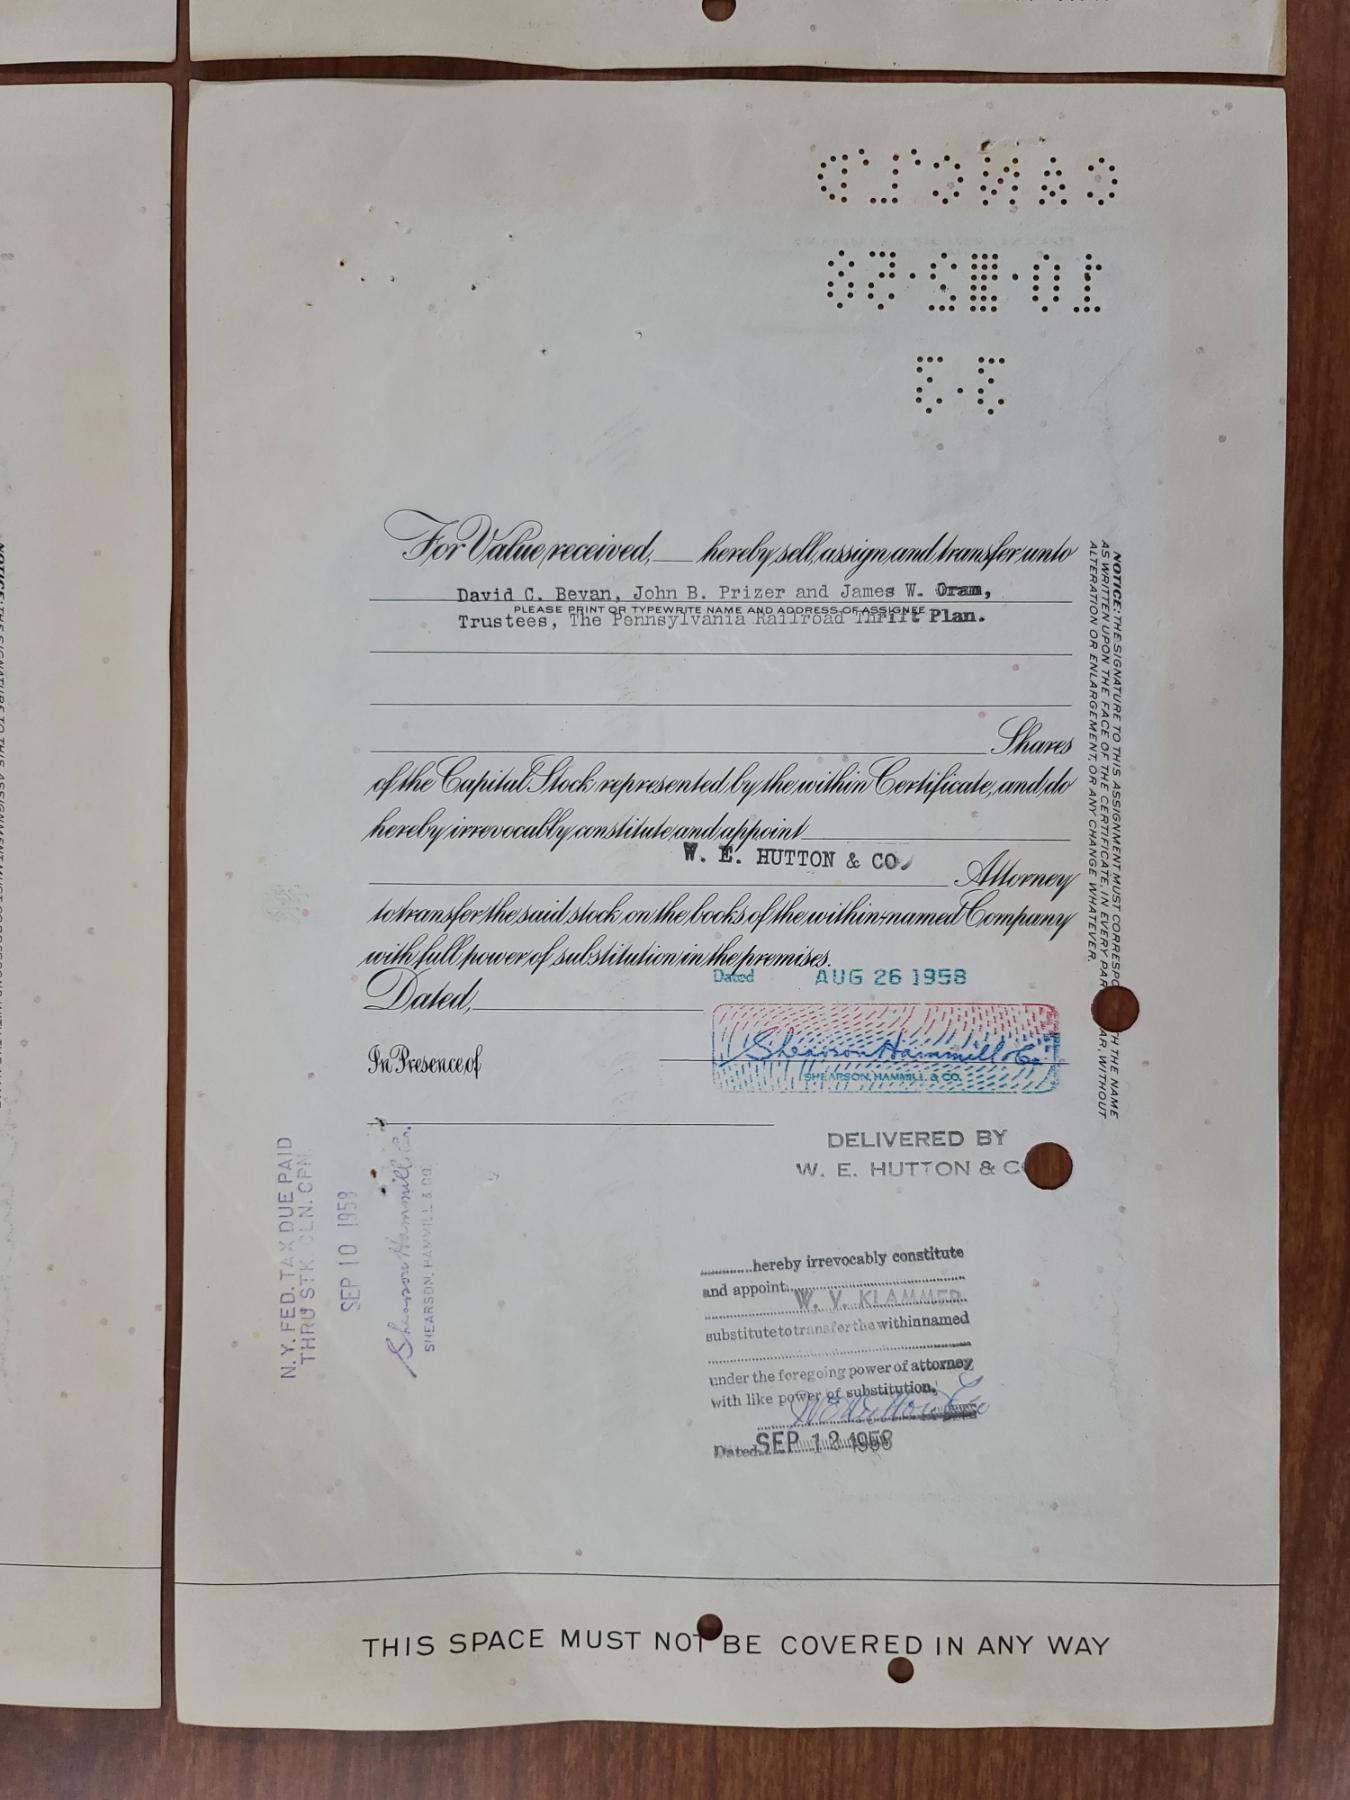 For Value received, ___ hereby sell, assign and transfer unto
David C. Bevan, John B. Prizer and James W. Oram,
PLEASE PRINT OR TYPEWRITE NAME AND ADDRESS OF ASSIGNEE
Trustees, The Pennsylvania Railroad Thrift Plan.
Shares
of the Capital Stock represented by the within Certificate, and do
hereby irrevocably constitute and appoint
W. E. HUTTON & CO.
Attorney
to transfer the said stock on the books of the within-named Company
with full power of substitution in the premises.
Dated AUG 26 1958
Dated,
Shearson Hammill & Co.
In Presence of
SHEARSON, HAMMILL & CO.
DELIVERED BY
W. E. HUTTON & CO
hereby irrevocably constitute
and appoint
W. V. KLAMMER
substitute to transfer the within named
under the foregoing power of attorney
with like power of substitution.
W E Hutton & Co
Dated SEP 12 1958
NOTICE: THE SIGNATURE TO THIS ASSIGNMENT MUST CORRESPO TH THE NAME
AS WRITTEN UPON THE FACE OF THE CERTIFICATE, IN EVERY PAR AR, WITHOUT
ALTERATION OR ENLARGEMENT, OR ANY CHANGE WHATEVER.
N. Y. FED. TAX DUE PAID
THRU STK. CLN. CPN.
SEP 10 1958
Shearson Hammill & Co.
SHEARSON, HAMMILL & CO.
THIS SPACE MUST NOT BE COVERED IN ANY WAY